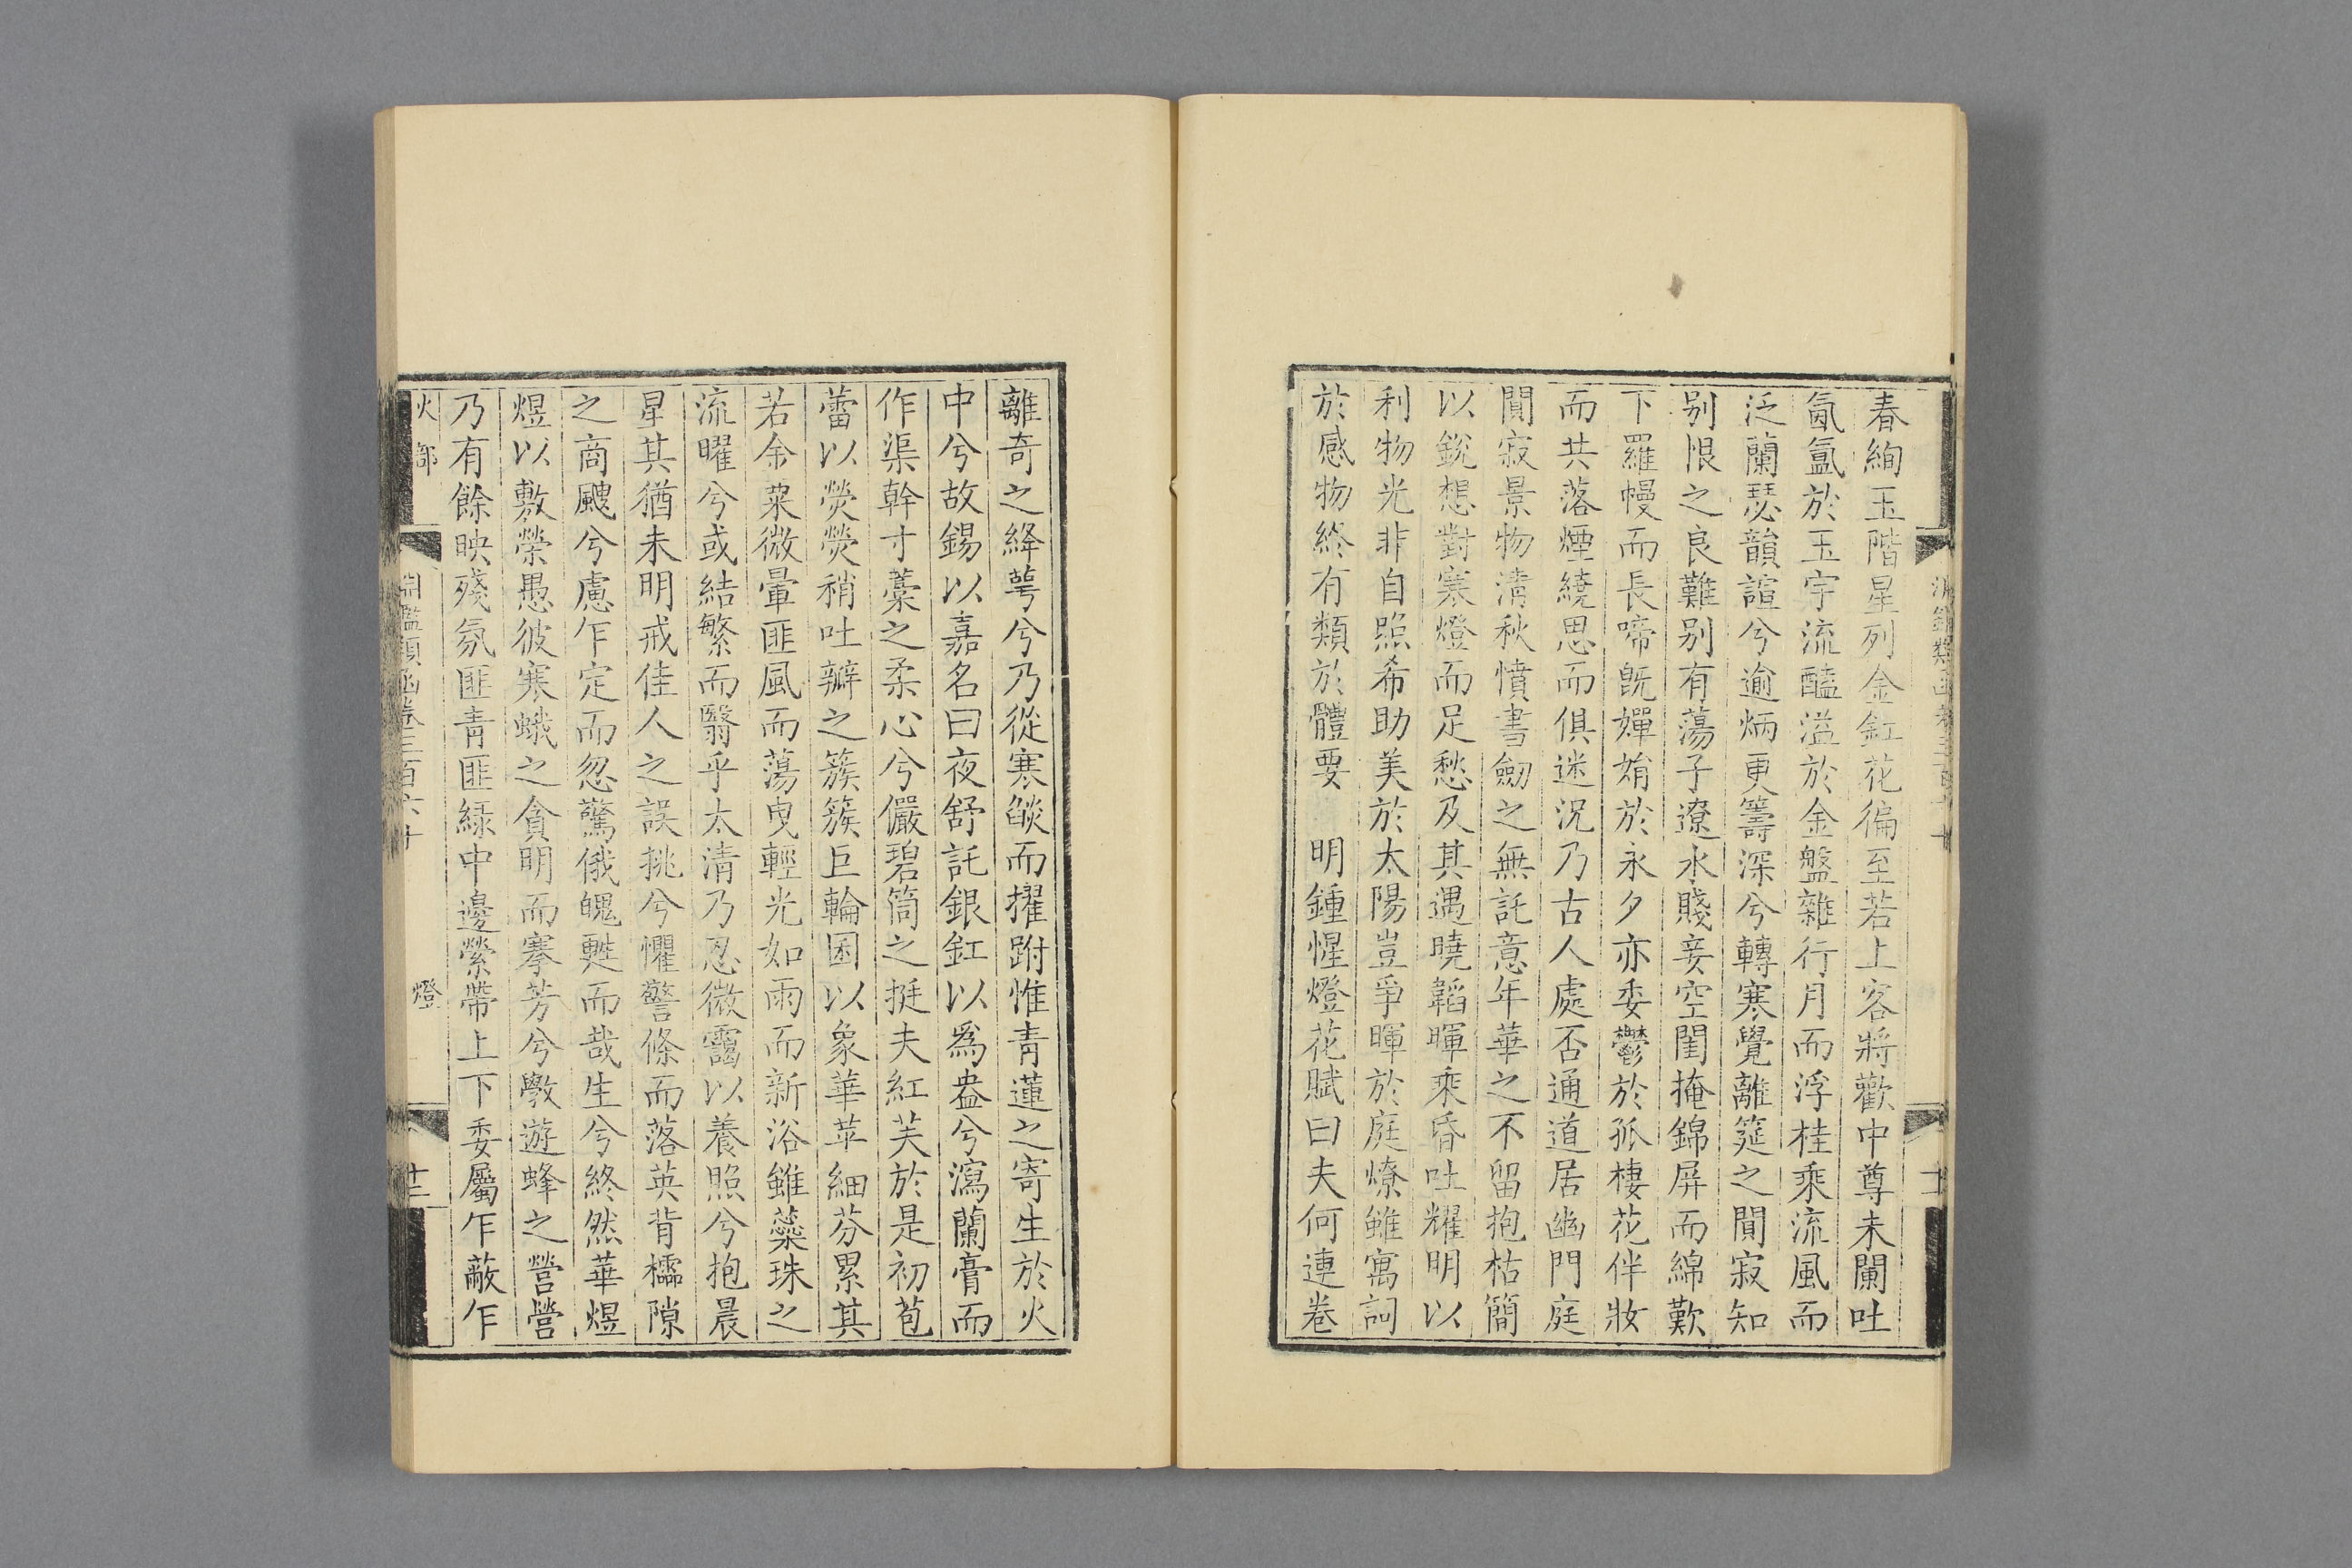 春絢玉階星列金釭花徧至若上客將歡中尊未闌吐
氤氳於玉宇流醠溢於金盤雜行月而浮桂乘流風而
泛蘭瑟韻諠兮逾炳更籌深兮轉寒覺離筵之閒寂知
别恨之良難别有蕩子遼水賤妾空閨掩錦屏而綿歎
下羅幔而長啼旣嬋娟於永夕亦委鬱於孤棲花伴妝
而共落煙繞思而俱迷况乃古人處否通道居幽門庭
閴寂景物清秋憤書劒之無託意年華之不留抱枯簡
以銳想對寒燈而足愁及其遇曉韜暉乘昏吐耀明以
利物光非自照希助美於太陽豈爭暉於庭燎雖寓詞
於感物終有類於體要 明鍾惺燈花賦曰夫何連卷
離奇之絳萼兮乃從寒燄而擢跗惟青蓮之寄生於火
中兮故錫以嘉名曰夜舒託銀釭以爲盎兮瀉蘭膏而
作渠幹寸藁之柔心兮儼碧筒之挺夫紅芙於是初苞
蕾以熒熒稍吐瓣之簇簇巨輪囷以象華苹細芬累其
若余粟微暈匪風而蕩曳輕光如雨而新浴雖蘂珠之
流曜兮或結繁而翳乎太清乃忍微靄以養照兮抱晨
星其猶未明戒佳人之誤挑兮懼警條而落英背櫺隙
之商颸兮慮乍定而忽驚俄魄甦而哉生兮終然華煜
煜以敷榮愚彼寒蛾之貪明而搴芳兮斆遊蜂之營營
乃有餘映殘氛匪青匪緑中邊縈帶上下委屬乍蔽乍
火部
淵鑑類函卷三百六十
燈